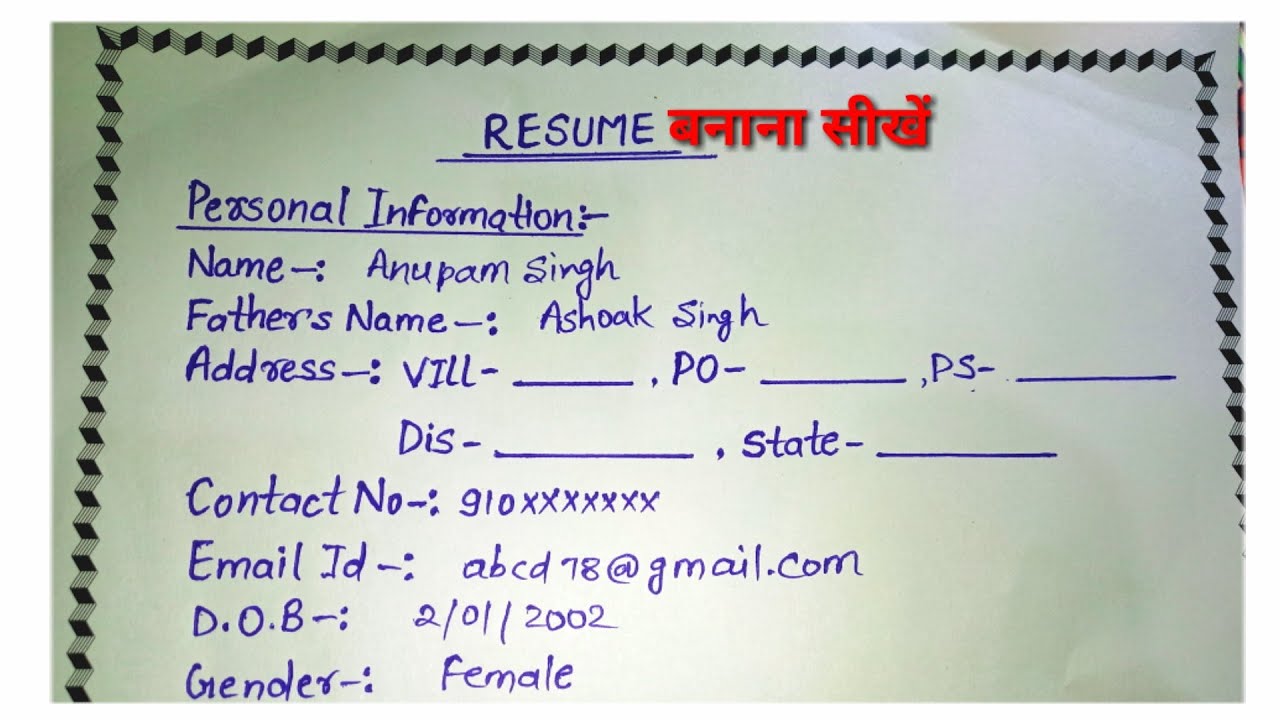 RESUME बनाना सीखें
Personal Information:-
Name-: Anupam Singh
Father's Name-: Ashoak Singh
Address-: VIll- ______, PO- ______, PS- ______
Dis- ______, State- ______
Contact No-: 910xxxxxxx
Email Id-: abcd78@gmail.com
D.O.B-: 2/01/2002
Gender-: Female